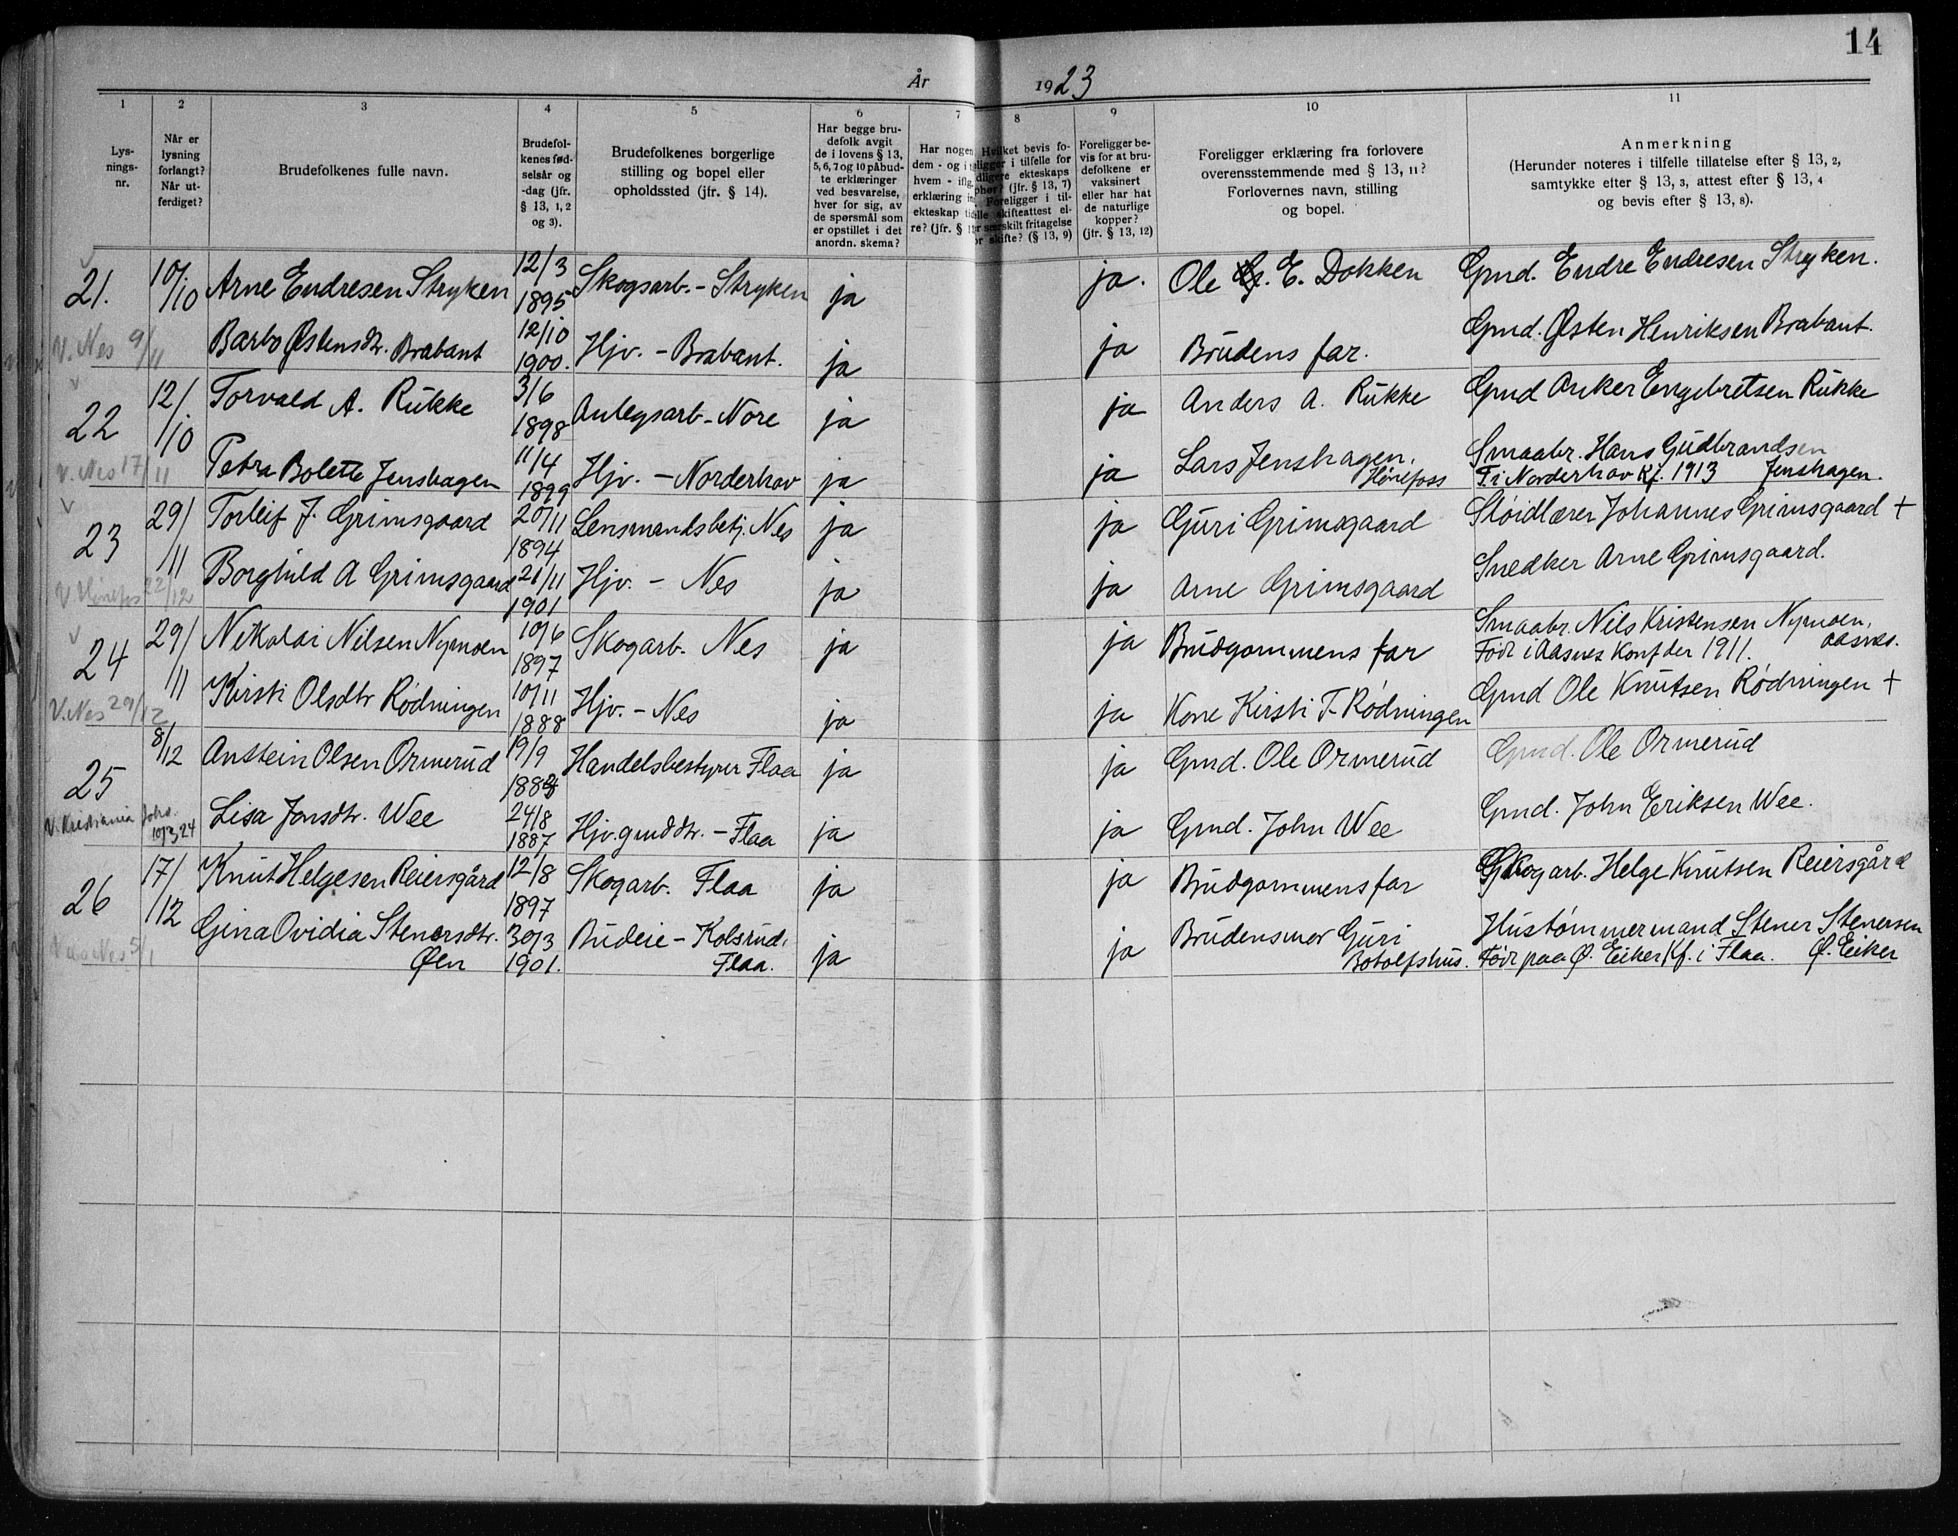 14
År 1923
1 2 3 4 5 6 7 8 9 10 11
Lys-
nings-
nr.
Når er
lysning
forlangt?
Når ut-
ferdiget?
Brudefolkenes fulle navn.
Brudefol-
kenes fød-
selsår og
-dag (jfr.
§ 13, 1, 2
og 3).
Brudefolkenes borgerlige
stilling og bopel eller
opholdssted (jfr. § 14).
Har begge bru-
defolk avgit
de i lovens § 13,
5, 6, 7 og 10 påbud-
te erklæringer
ved besvarelse,
hver for sig, av
de spørsmål som
er opstillet i det
anordn. skema?
Har nogen
dem - og i
hvem - ifig.
erklæring in
ekteskap ti
re? (jfr. § 1
Hvilket bevis fo-
religger i tilfelle for
dligere ekteskaps
phør? (jfr. § 13, 7)
Foreligger i til-
elle skifteattest el-
er særskilt fritagelse
or skifte? (§ 13, 9)
Foreligger be-
vis for at bru-
defolkene er
vaksinert
eller har hat
de naturlige
kopper?
(jfr. § 13, 12)
Foreligger erklæring fra forlovere
overensstemmende med § 13, 11?
Forlovernes navn, stilling
og bopel.
Anmerkning
(Herunder noteres i tilfelle tillatelse efter § 13, 2,
samtykke efter § 13, 3, attest efter § 13, 4
og bevis efter § 13, 8).
21. 10/10 Arne Endresen Stryken 12/3 1895 Skogsarb. - Stryken ja ja. Ole E. Dokken Gmd. Endre Endresen Stryken.
V. Nes 9/11 Barbo Østensdtr. Brabant 12/10 1900. Hjv. - Brabant. ja ja Brudens far. Gmd. Østen Henriksen Brabant.
22 12/10 Torvald A. Rukke 3/6 1898 Anlegsarb - Nore ja ja Anders A. Rukke Gmd Anker Engebretsen Rukke
V. Nes 17/11 Petra Bolette Jenshagen 11/4 1899 Hjv. - Norderhov ja ja Lars Jenshagen, Hønefoss Smaabr. Hans Gudbrandsen
F. i Norderhov Kf. 1913 Jenshagen.
23 29/11 Torleif J. Grimsgaard 20/11 1894 Lensmandsbetj. Nes ja ja Guri Grimsgaard Sløidlærer Johannes Grimsgaard +
V. Hønefos 22/12 Borghild A Grimsgaard 21/11 1901 Hjv. - Nes ja ja Arne Grimsgaard Snedker Arne Grimsgaard.
24 29/11 Nikolai Nilsen Nymoen 10/6 1897 Skogarb. Nes ja ja Brudgommens far Smaabr. Nils Kristensen Nymoen,
Født i Aasnes Konf der 1911. Aasnes.
V. Nes 29/12 Kirsti Olsdtr Rødningen 10/11 1888 Hjv. - Nes ja ja Kone Kirsti T. Rødningen Gmd Ole Knutsen Rødningen +
25 8/12 Anstein Olsen Ormerud 19/9 188 Handelsbestyrer Flaa ja ja Gmd. Ole Ormerud Gmd. Ole Ormerud
V. Kristiania Johs. 19/3 24 Lisa Jonsdtr. Wee 24/8 1887 Hjv. gmddtr. - Flaa ja ja Gmd. John Wee Gmd. John Eriksen Wee.
26 17/12 Knut Helgesen Reiersgård 12/8 1897 Skogarb. Flaa ja ja Brudgommens far Skogarb. Helge Knutsen Reiersgård
Nes 5/1 Gina Ovidia Stenersdtr. Øen 30/3 1901. Budeie - Kolsrud, Flaa. ja ja Brudens mor Guri Botolfshus. Hustømmermand Stener Stenersen
Født paa Ø. Eiker Kf. i Flaa. Ø. Eiker